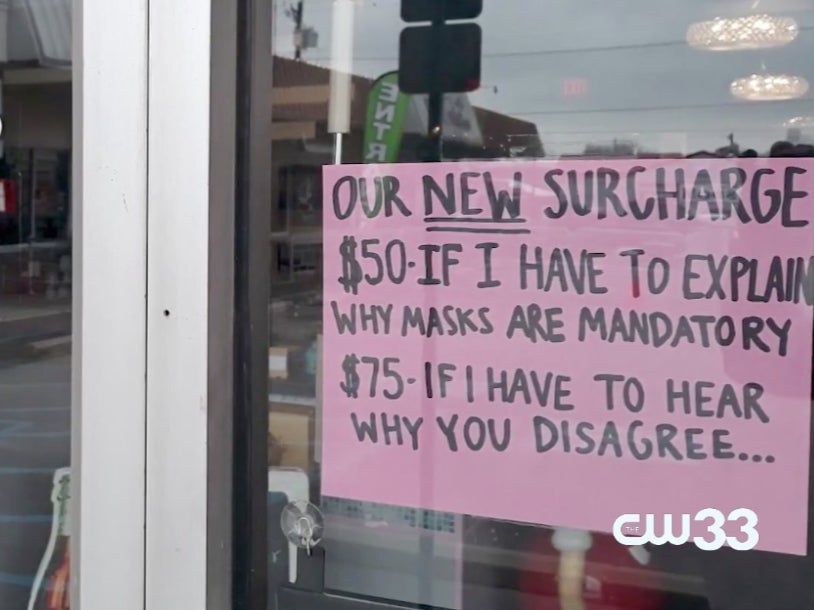 OUR NEW SURCHARGE
$50-IF I HAVE TO EXPLAIN
WHY MASKS ARE MANDATORY
$75-IF I HAVE TO HEAR
WHY YOU DISAGREE...
ENTR
THE CW33